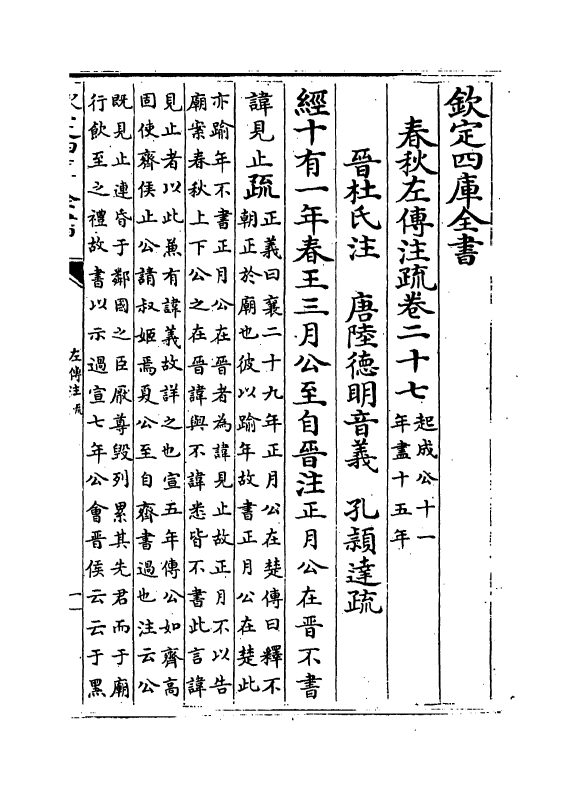 欽定四庫全書
春秋左傳注疏卷二十七起成公十一
年盡十五年
晉杜氏注　唐陸德明音義　孔穎達疏
經十有一年春王三月公至自晉注正月公在晉不書
諱見止疏正義曰襄二十九年正月公在楚傳曰釋不
朝正於廟也彼以踰年故書正月公在楚此
亦踰年不書正月公在晉者為諱見止故正月不以告
廟案春秋上下公之在晉諱與不諱悉皆不書此言諱
見止者以此兼有諱義故詳之也宣五年傳公如齊高
固使齊侯止公請叔姬焉夏公至自齊書過也注云公
既見止連昏于鄰國之臣厭尊毀列累其先君而于廟
行飲至之禮故書以示過宣七年公會晉侯云云于黑
左傳注疏
一